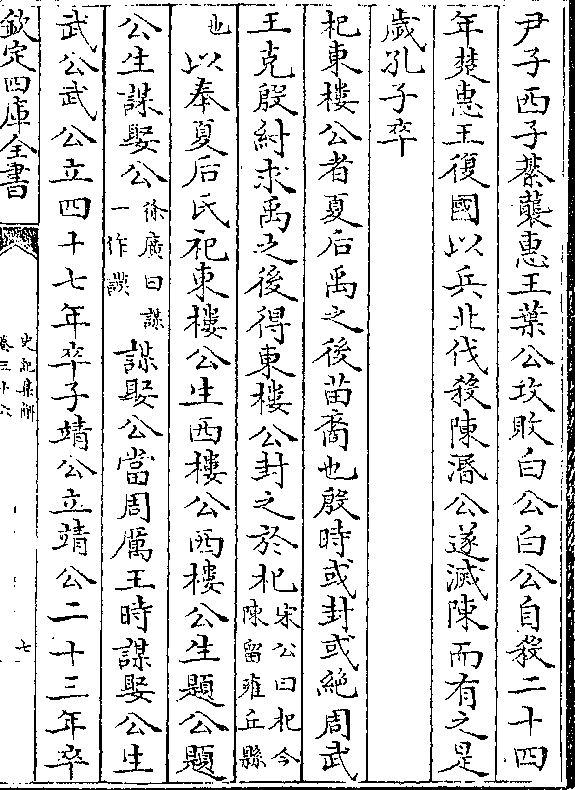 尹子西子綦襲惠王葉公攻敗白公白公自殺二十四
年楚惠王復國以兵北伐殺陳湣公遂滅陳而有之是
歲孔子卒
杞東樓公者夏后禹之後苗裔也殷時或封或絶周武
王克殷紂求禹之後得東樓公封之於杞宋公曰杞今陳留雍丘縣
也以奉夏后氏祀東樓公生西樓公西樓公生題公題
公生謀娶公徐廣曰謀一作謨謀娶公當周厲王時謀娶公生
武公武公立四十七年卒子靖公立靖公二十三年卒
欽定四庫全書
史記集解
卷三十六
七